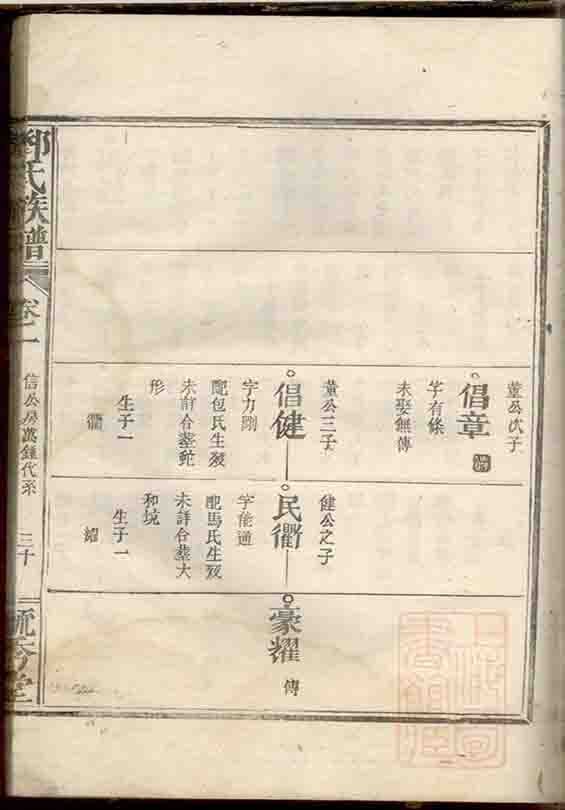 董公次子
倡章
字有條
未娶無傳
董公三子
倡健
字力剛
配包氏生歿
未詳合塟蛇
形
生子一
衢
健公之子
民衢
字能通
配馬氏生歿
未詳合塟大
和境
生子一
耀
豪耀
傳
鄧氏族譜
卷二
信公房萬鍾代系
三十